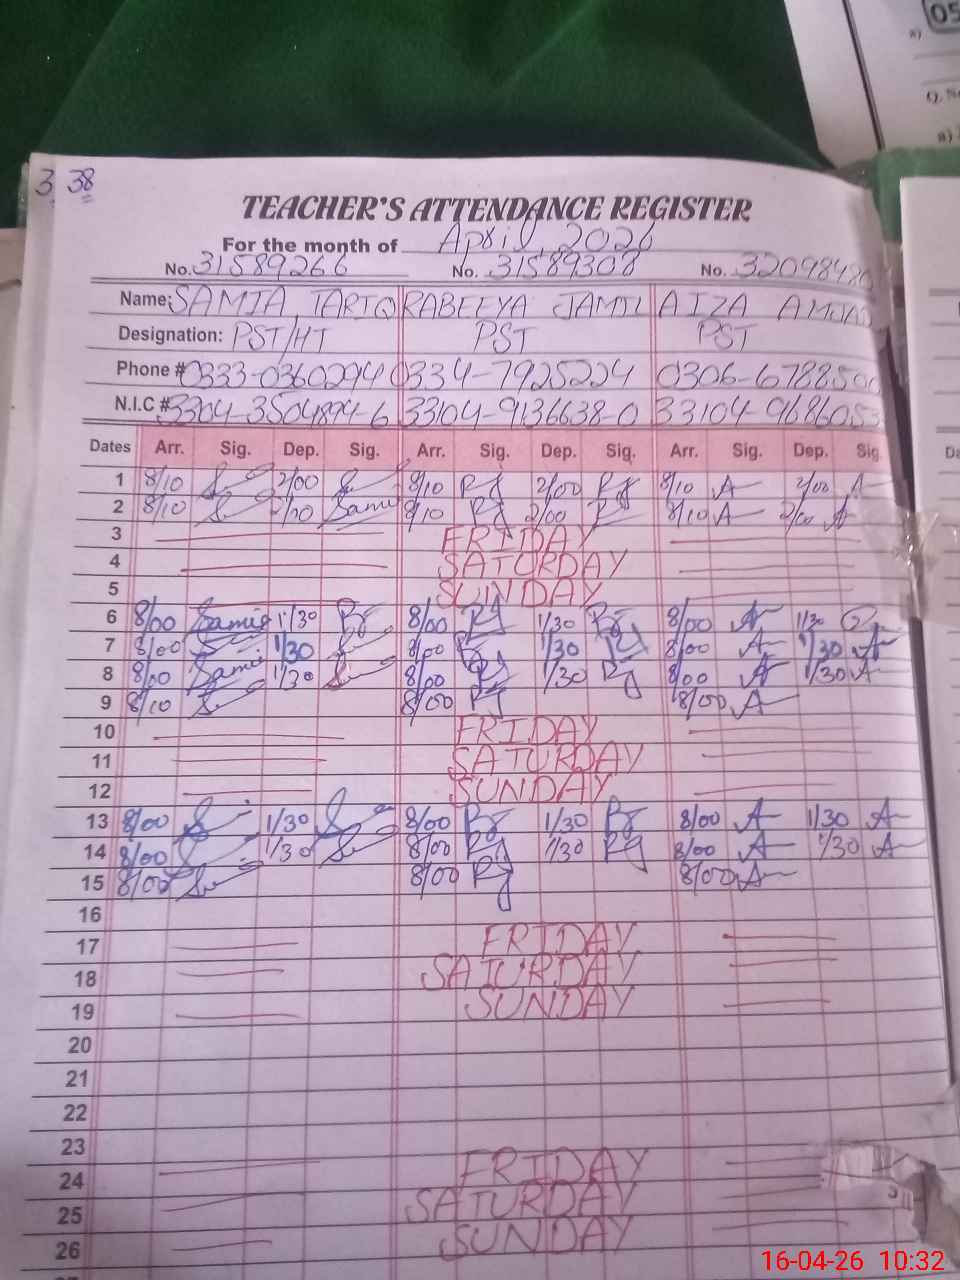 3 38
TEACHER'S ATTENDANCE REGISTER
For the month of April, 2026
No. 31589266 No. 31589308 No. 32098480
Name: SAMIA TARIQ RABEEYA JAMIL AIZA AMJAD
Designation: PST/HT PST PST
Phone # 0333-0360294 0334-7925224 0306-6788500
N.I.C # 33104-9136638-0 33104-9686053
Dates Arr. Sig. Dep. Sig. Arr. Sig. Dep. Sig. Arr. Sig. Dep. Sig
1 8/10 2/00 8/10 Rj 2/00 Rj 8/10 A 2/00 A
2 8/10 2/00 Samia 8/10 Rj 2/00 8/10 A 2/00 A
3 FRIDAY
4 SATURDAY
5 SUNDAY
6 8/00 Samia 1/30 8/00 Rj 1/30 Rj 8/00 A 1/30
7 8/00 1/30 8/00 Rj 1/30 Rj 8/00 A 1/30 A
8 8/00 Samia 1/30 8/00 Rj 1/30 Rj 8/00 A 1/30 A
9 8/10 8/00 Rj 8/00 A
10 FRIDAY
11 SATURDAY
12 SUNDAY
13 8/00 1/30 8/00 Rj 1/30 Rj 8/00 A 1/30 A
14 8/00 1/30 8/00 Rj 1/30 Rj 8/00 A 1/30 A
15 8/00 8/00 Rj 8/00 A
16
17 FRIDAY
18 SATURDAY
19 SUNDAY
20
21
22
23
24 FRIDAY
25 SATURDAY
26 SUNDAY
05
Q.
16-04-26 10:32